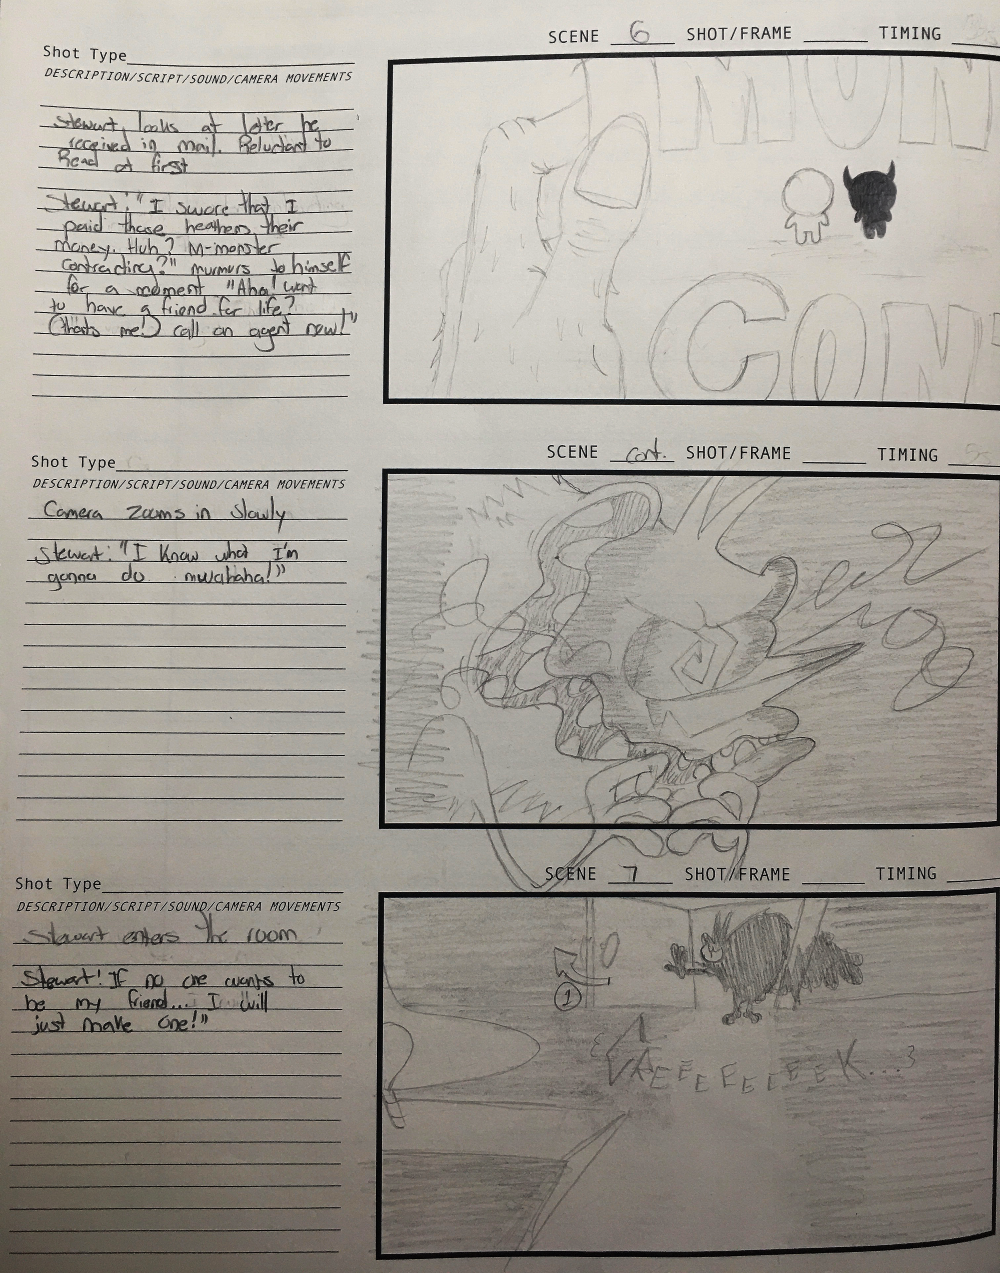 SCENE 6 SHOT/FRAME TIMING
Shot Type
DESCRIPTION/SCRIPT/SOUND/CAMERA MOVEMENTS
Stewart looks at letter he
received in mail. Reluctant to
Read at first
Stewart: "I swore that I
paid those heathens their
money. Huh? M-monster
contracting?" murmurs to himself
for a moment "Aha! want
to have a friend for life?
(thats me!) call an agent now!"
MON
CONT
SCENE cont. SHOT/FRAME TIMING
Shot Type
DESCRIPTION/SCRIPT/SOUND/CAMERA MOVEMENTS
Camera zooms in slowly
Stewart: "I know what I'm
gonna do mwahaha!"
SCENE 7 SHOT/FRAME TIMING
Shot Type
DESCRIPTION/SCRIPT/SOUND/CAMERA MOVEMENTS
Stewart enters the room
Stewart! If no one wants to
be my friend... I will
just make one!"
1